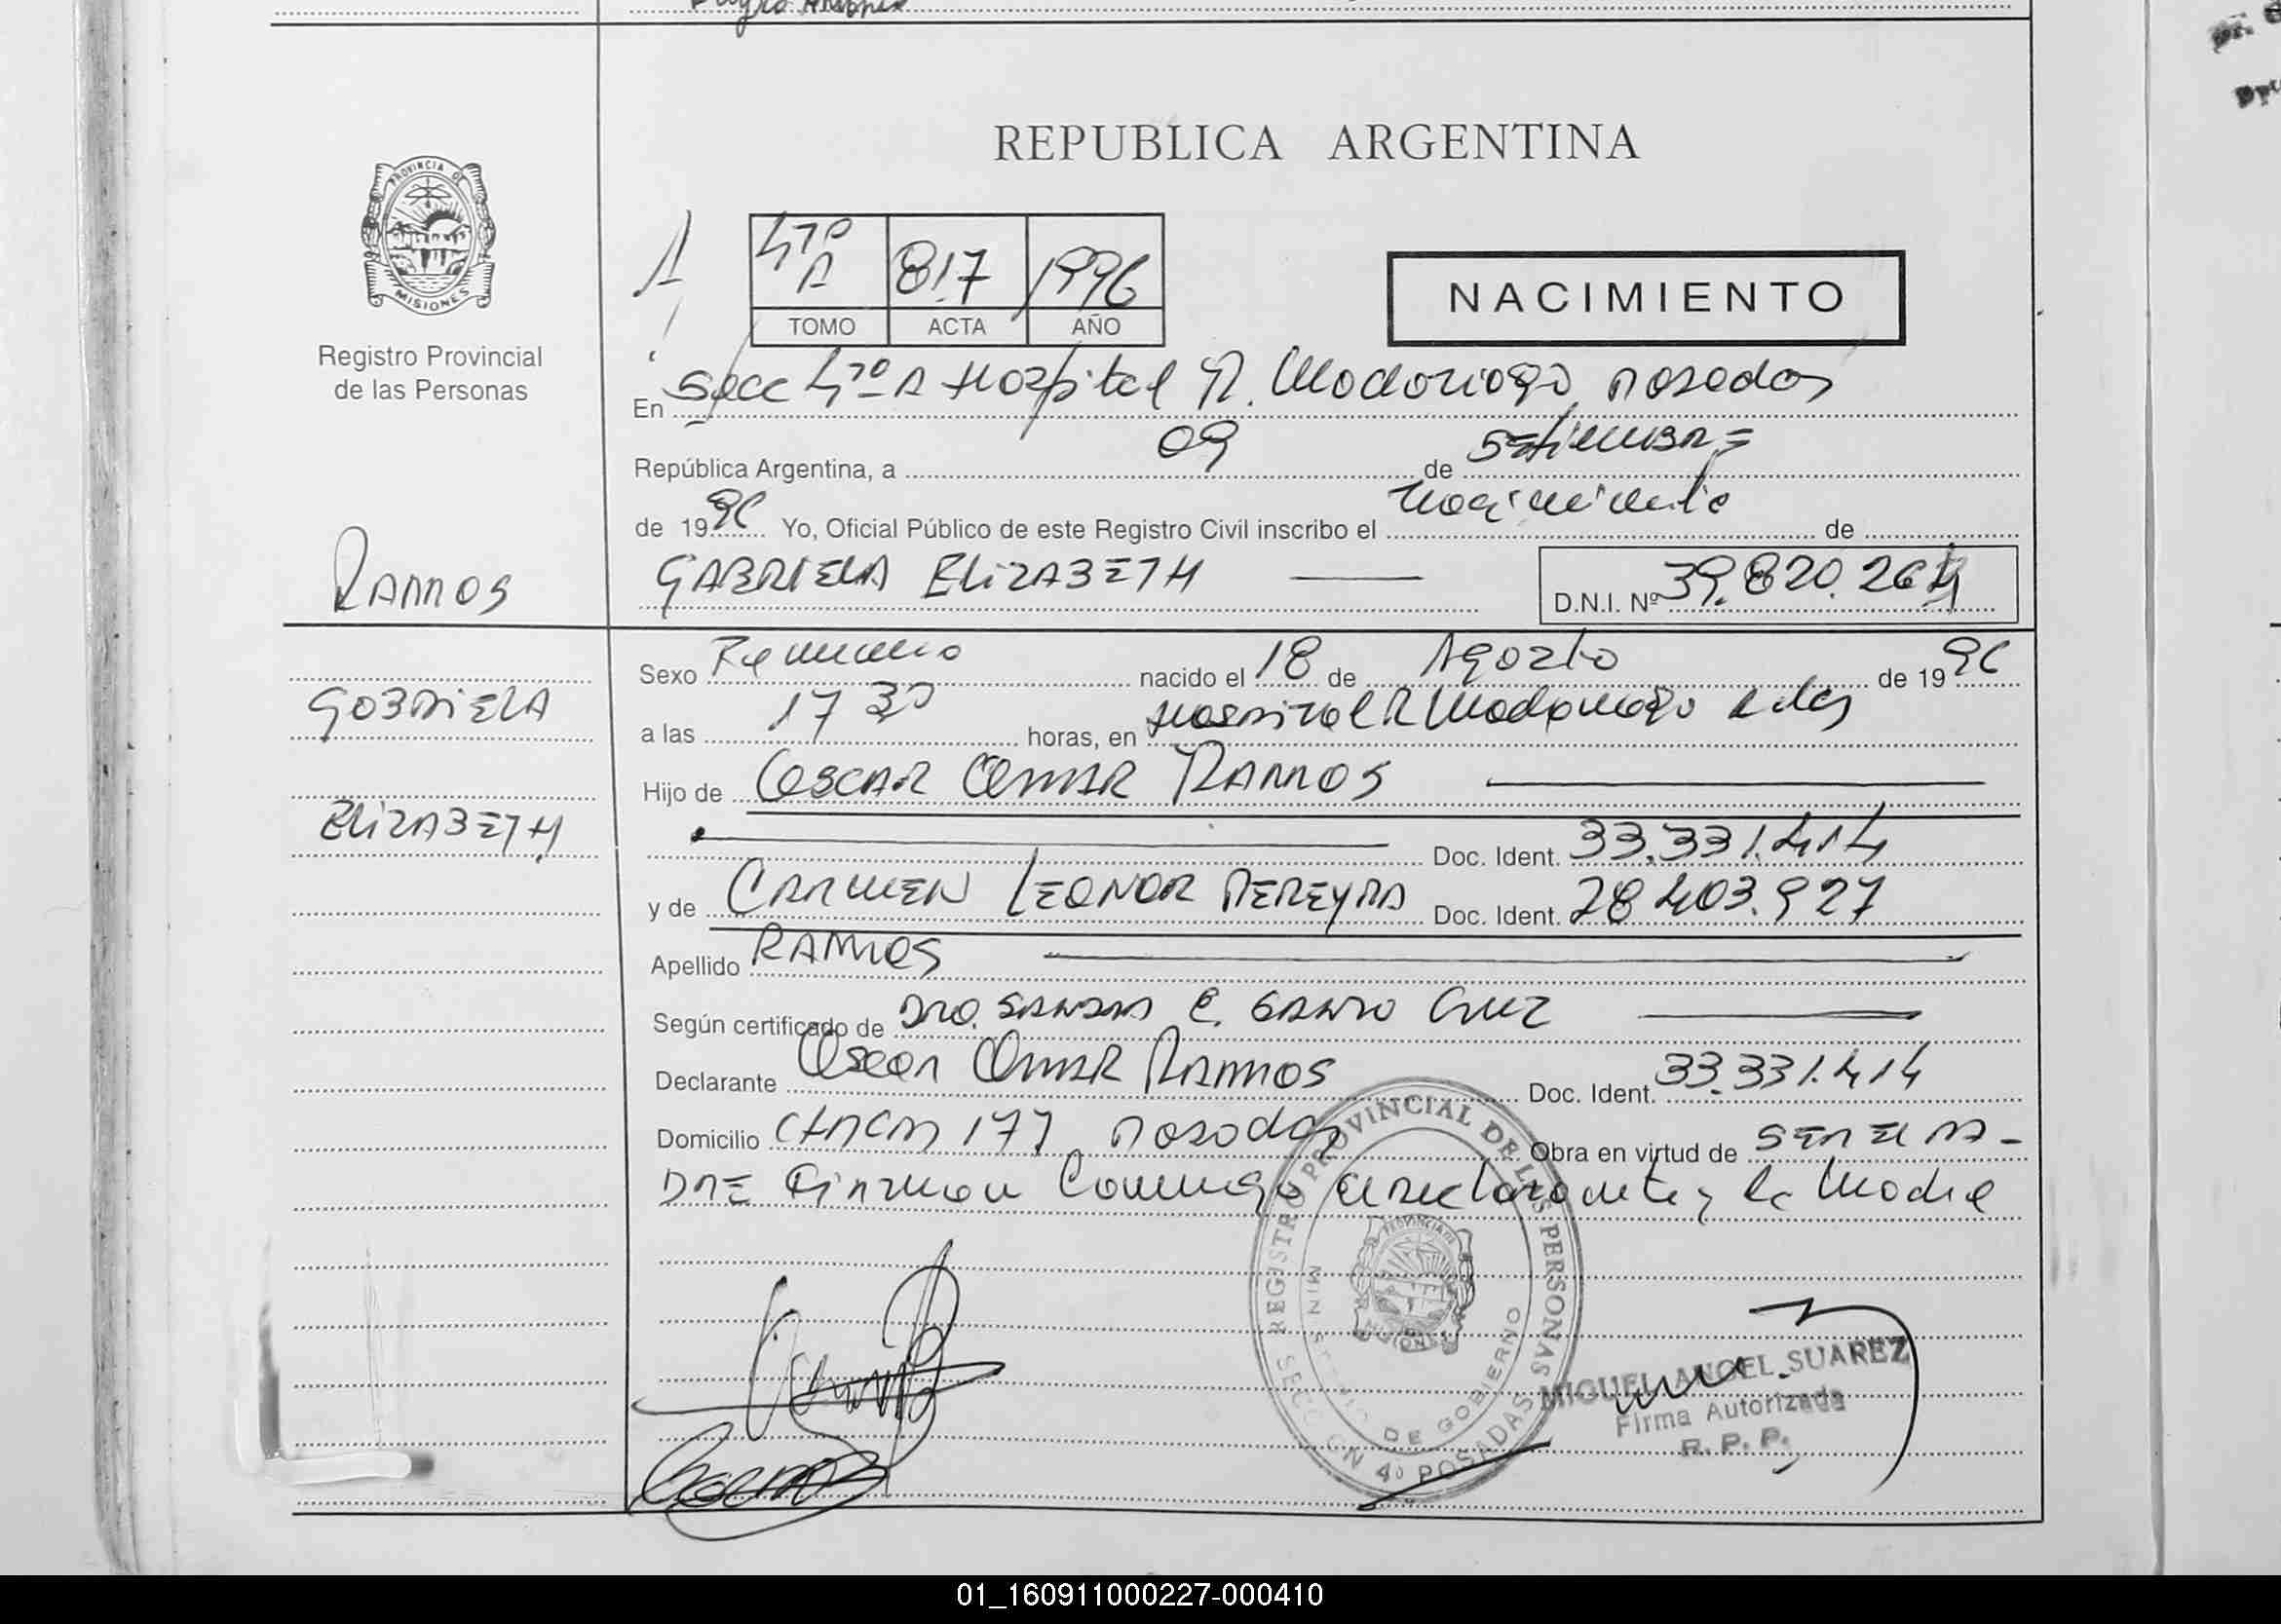 REPUBLICA ARGENTINA
PROVINCIA DE
MISIONES
Registro Provincial
de las Personas
4to A 817 1996
TOMO ACTA AÑO
NACIMIENTO
En Secc 4to A Hospital R. Madariaga Posadas
República Argentina, a 09 de Setiembre
de 1996 Yo, Oficial Público de este Registro Civil inscribo el nacimiento de
RAMOS
GABRIELA ELIZABETH
D.N.I. Nº 39.820.264
Sexo Femenino nacido el 18 de Agosto de 1996
GABRIELA
a las 17 30 horas, en Hospital R Madariaga
Hijo de OSCAR OMAR RAMOS
ELIZABETH
Doc. Ident. 33.331.414
y de CARMEN LEONOR PEREYRA Doc. Ident. 28.403.927
Apellido RAMOS
Según certificado de Dra. SANDRA E. SANTA CRUZ
Declarante Oscar OMAR RAMOS Doc. Ident. 33.331.414
Domicilio CHACRA 177 Posadas Obra en virtud de SER EL PA-
DRE Firman Conmigo el declarante y la Madre
REGISTRO PROVINCIAL DE LAS PERSONAS
MINISTERIO DE GOBIERNO
SECCION 4º POSADAS
MIGUEL ANGEL SUAREZ
Firma Autorizada
R. P. P.
01_160911000227-000410